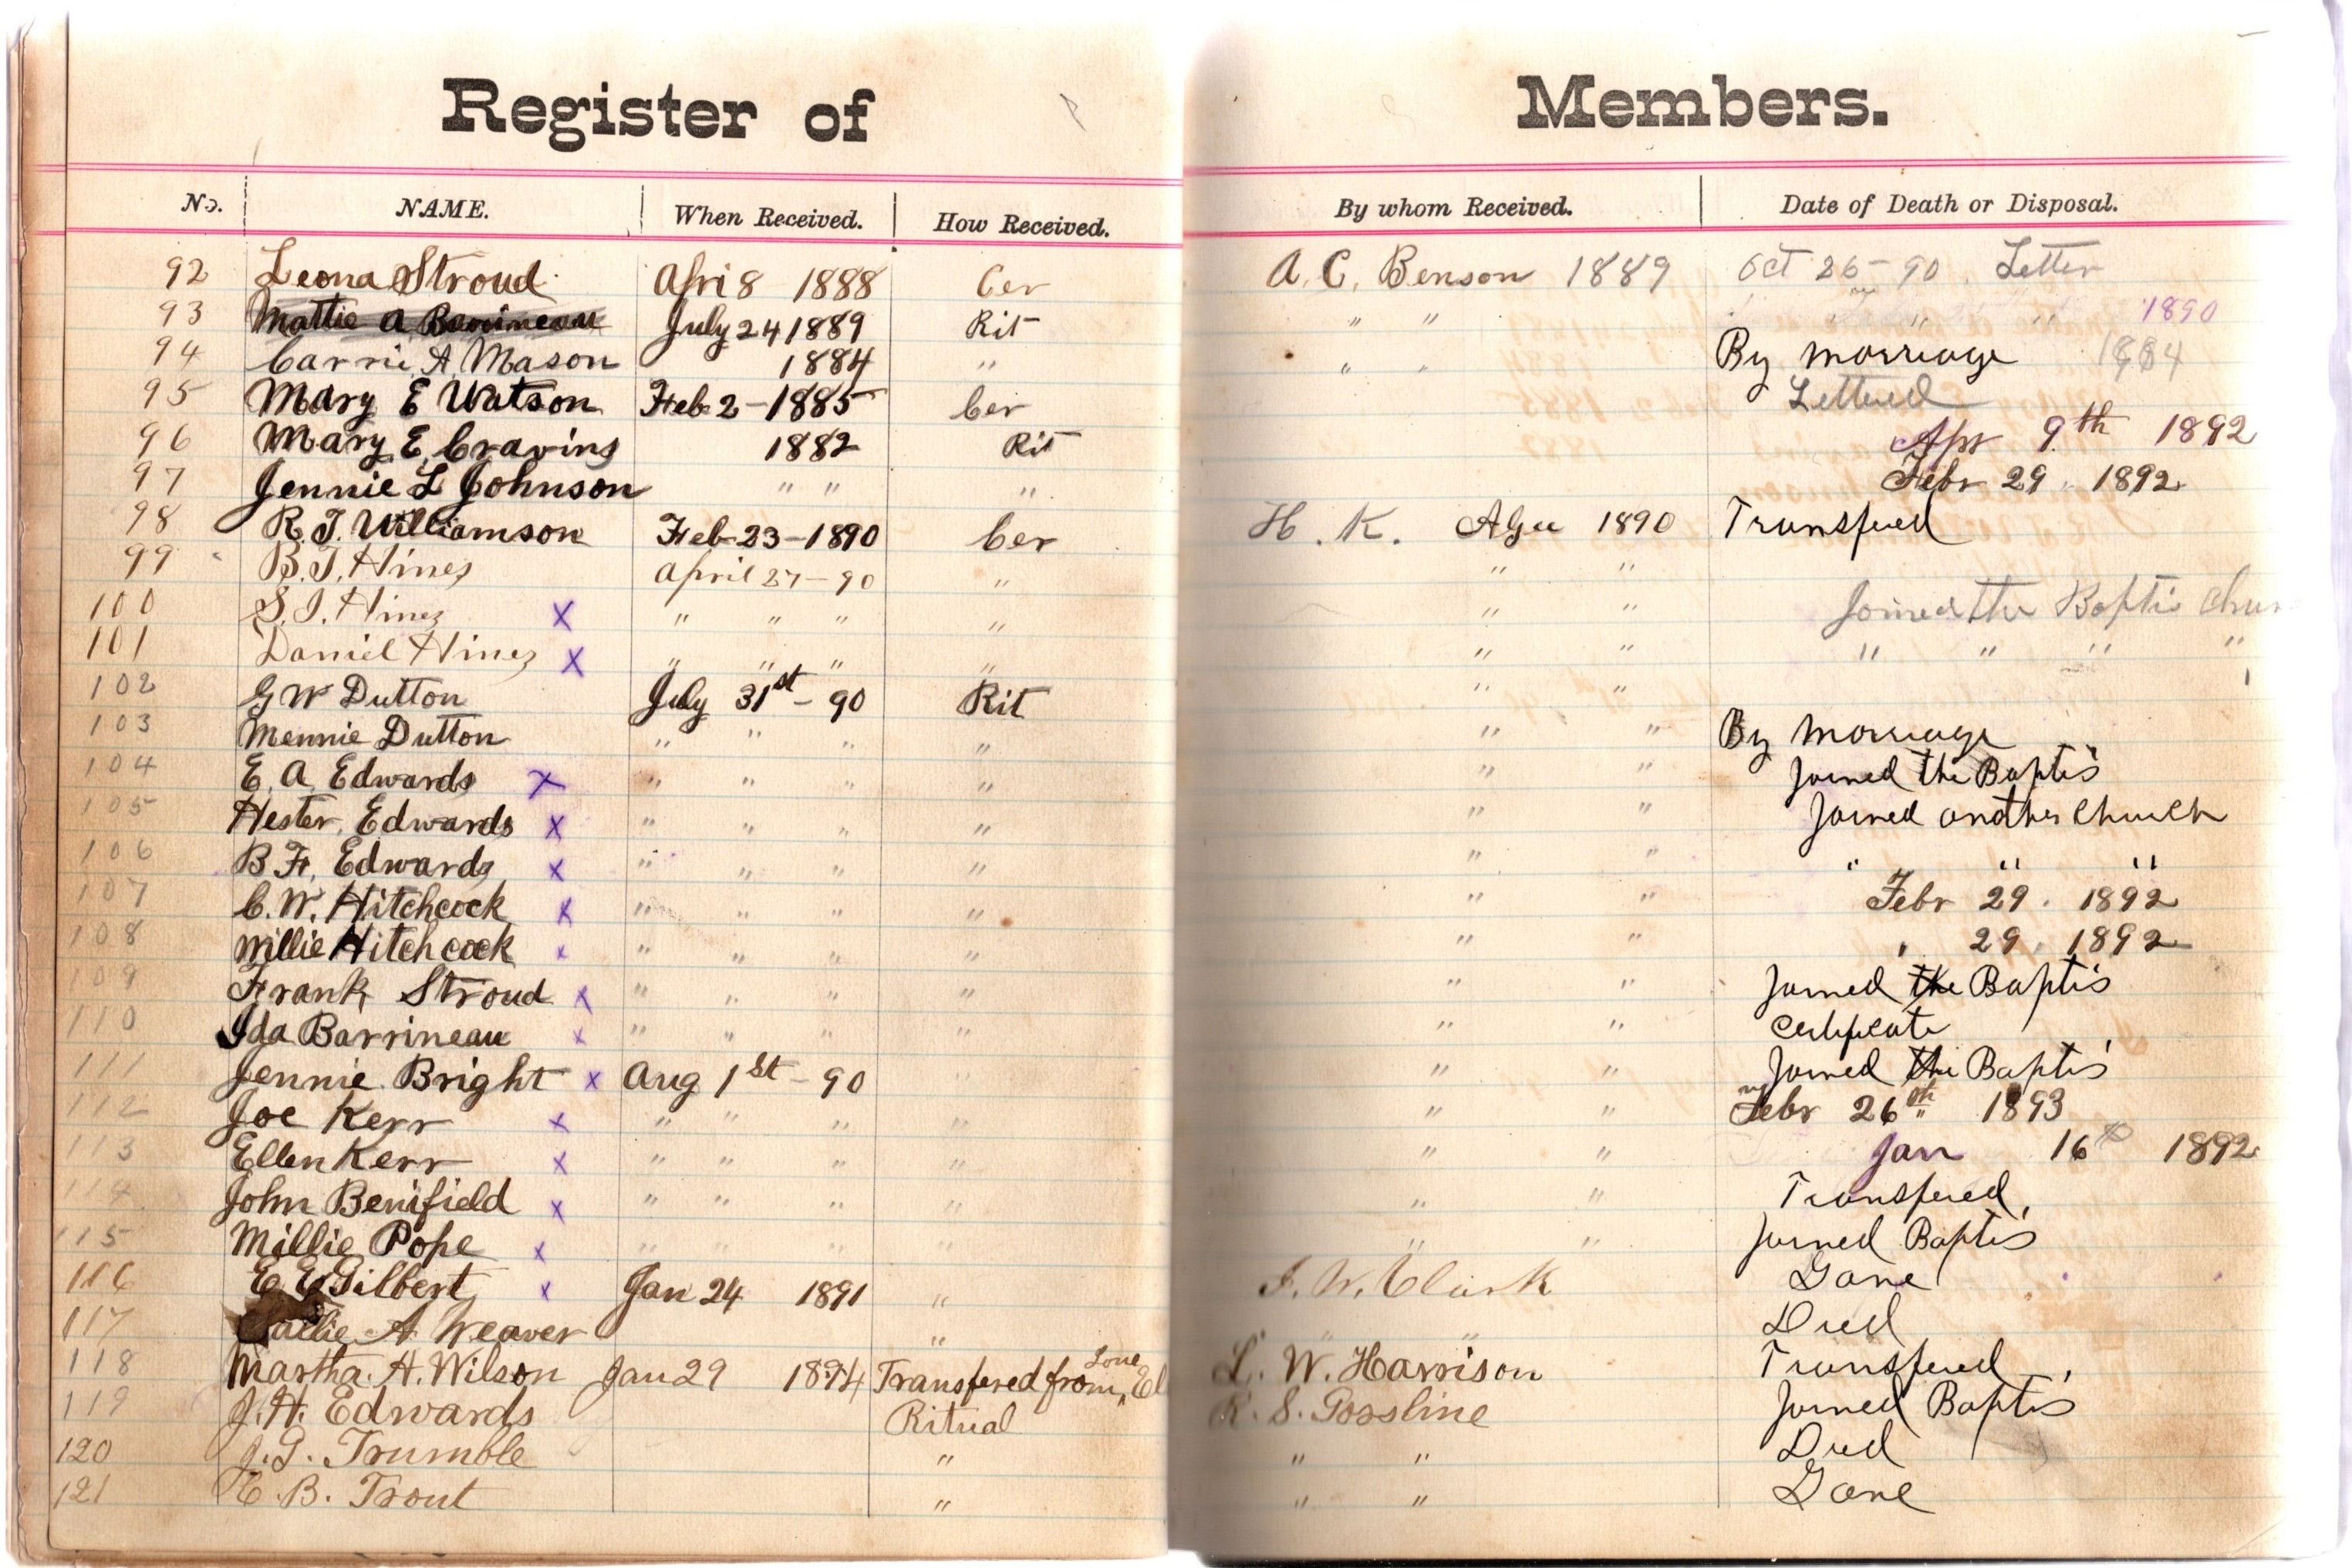 Register of Members.
No. NAME. When Received. How Received. By whom Received. Date of Death or Disposal.
92 Leona Stroud Apri 8 1888 Cer A. C. Benson 1889 Oct 26 - 90. Letter
93 Mattie A Barrineau July 24 1889 Rit " " " " " 1890
94 Carrie A Mason 1884 " " " By marriage 1884
95 Mary E Watson Feb 2 - 1885 Cer Lettered
96 Mary E Cravins 1882 Rit Apr 9th 1892
97 Jennie L Johnson " " " Febr 29. 1892
98 R. J. Williamson Feb 23 - 1890 Cer H. K. Agee 1890 Transfered
99 B. J. Hines April 27 - 90 " " "
100 S. J. Hines X " " " " " " Joined the Baptis Chur
101 Daniel Hines X " " " " " " " " " "
102 G W Dutton July 31st - 90 Rit " "
103 Mennie Dutton " " " " " " By marriage
104 E. A. Edwards X " " " " " " Joined the Baptis
105 Hester Edwards X " " " " " " Joined another Church
106 B. F. Edwards X " " " " " " " " "
107 C. W. Hitchcock X " " " " " " Febr 29. 1892
108 Willie Hitchcock x " " " " " " " 29. 1892
109 Frank Stroud x " " " " " " Joined the Baptis
110 Ida Barrineau x " " " " " " Certificate
111 Jennie Bright x Aug 1st - 90 " " " Joined the Baptis
112 Joe Kerr x " " " " " " Febr 26th 1893
113 Ellen Kerr x " " " " " " Jan 16th 1892
114 John Benifield x " " " " " " Transfered,
115 Millie Pope x " " " " " " Joined Baptis
116 E E Gilbert x Jan 24 1891 " J. W. Clark Gone
117 A Weaver " " " Died
118 Martha. H. Wilson Jan 29 1894 Transfered from Love El L. W. Harrison Transfered,
119 J. H. Edwards Ritual R. S. Gossline Joined Baptis
120 J. G. Trumble " " " Died
121 E. B. Trout " " " Gone